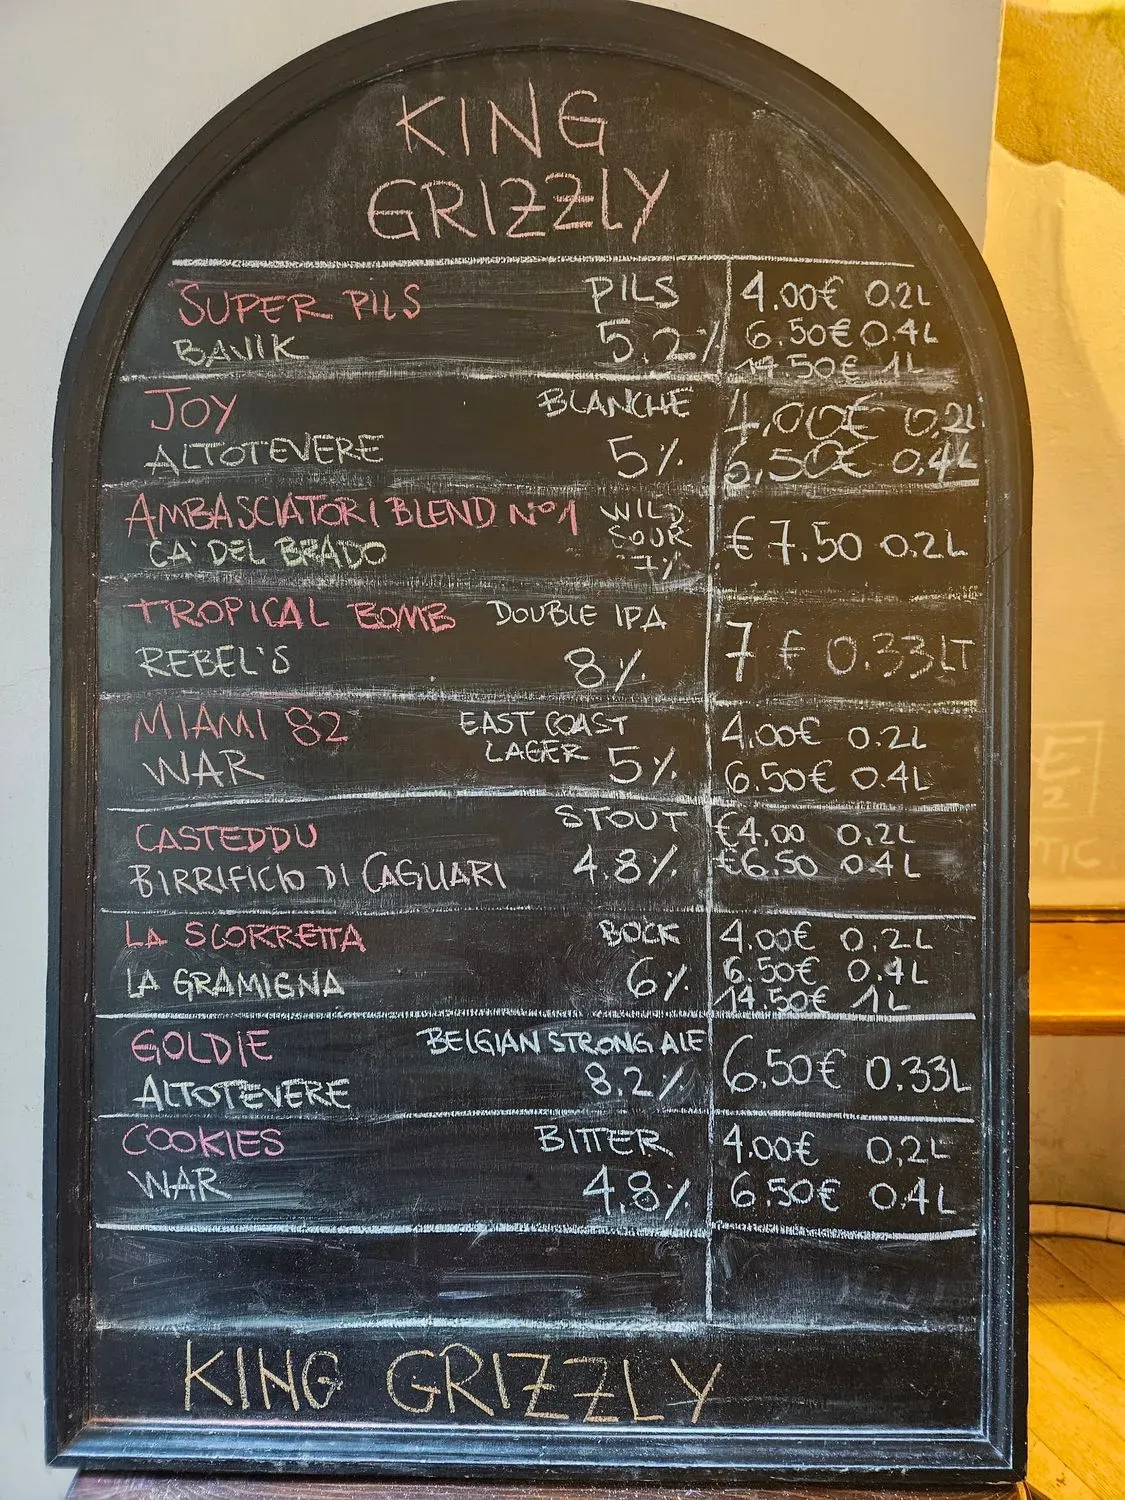 KING
GRIZZLY
SUPER PILS PILS 4.00€ 0.2L
BAVIK 5.2% 6.50€ 0.4L
14.50€ 1L
JOY BLANCHE 4,00€ 0,2L
ALTOTEVERE 5% 6,50€ 0,4L
AMBASCIATORI BLEND N°1 WILD
SOUR
CA' DEL BRADO 7% €7.50 0.2L
TROPICAL BOMB DOUBLE IPA
REBEL'S 8% 7 € 0.33LT
MIAMI 82 EAST COAST 4.00€ 0.2L
LAGER
WAR 5% 6.50€ 0.4L
CASTEDDU STOUT €4,00 0.2L
BIRRIFICIO DI CAGLIARI 4.8% €6.50 0.4L
LA SCORRETTA BOCK 4.00€ 0,2L
LA GRAMIGNA 6% 6.50€ 0.4L
14.50€ 1L
GOLDIE BELGIAN STRONG ALE
ALTOTEVERE 8.2% 6.50€ 0.33L
COOKIES BITTER 4.00€ 0,2L
WAR 4.8% 6.50€ 0.4L
KING GRIZZLY